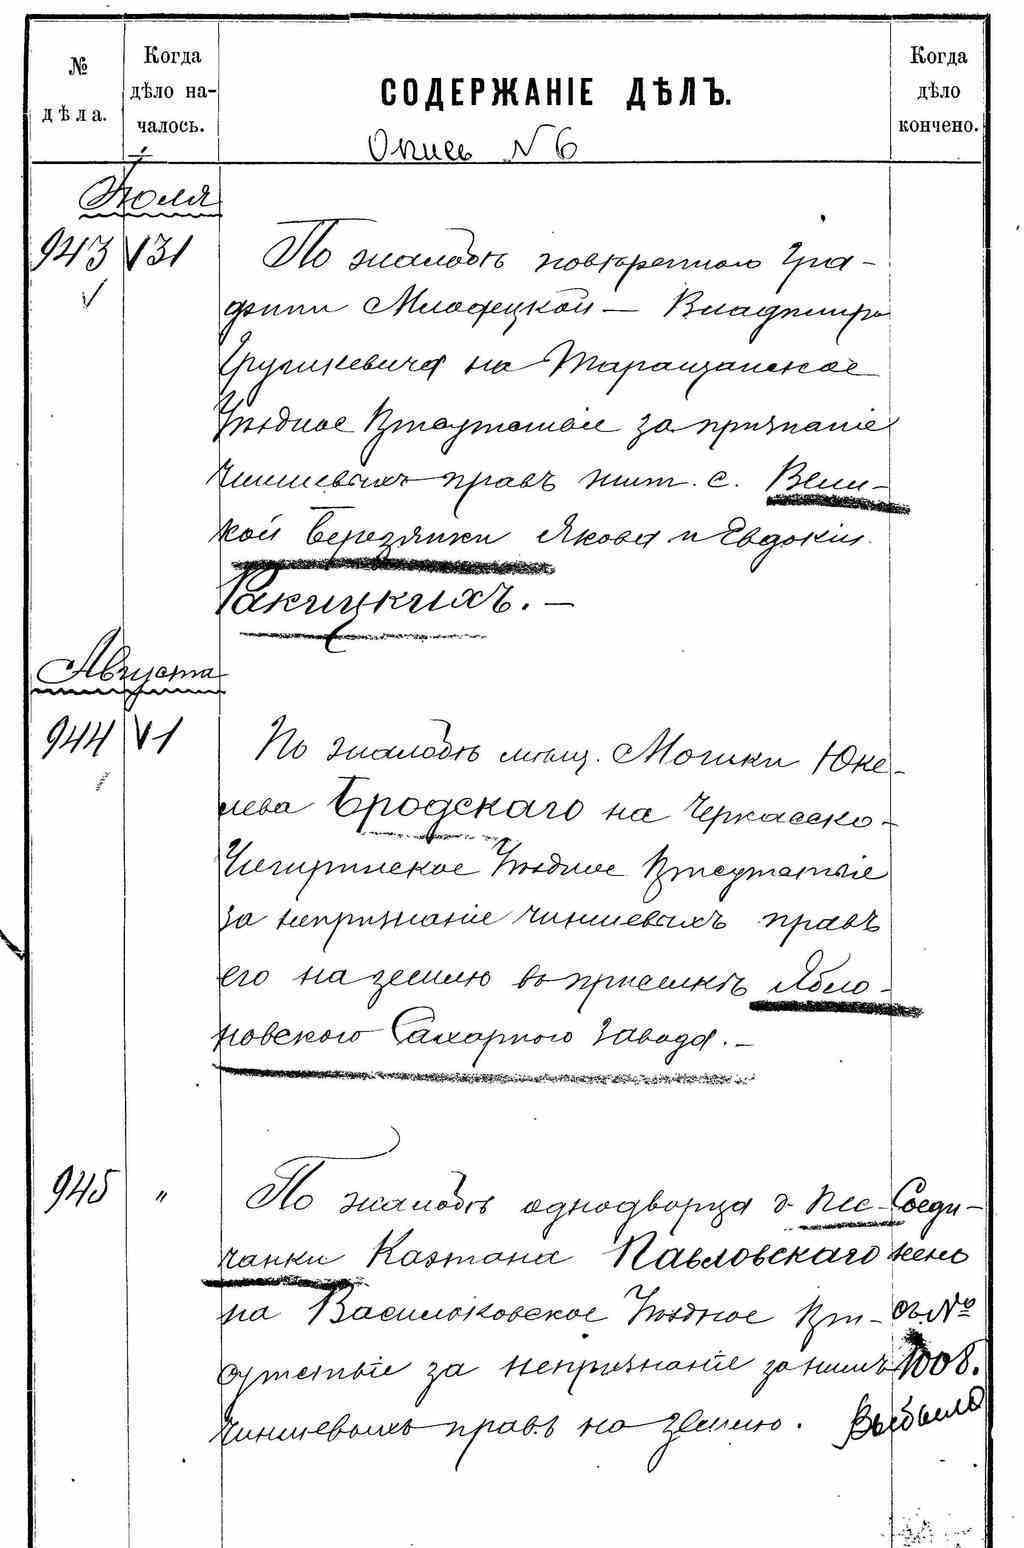 № дѣла.
Когда дѣло началось.
СОДЕРЖАНІЕ ДѢЛЪ.
Когда дѣло кончено.
Опись N 6
Іюля
943 V 31 По жалобѣ повѣреннаго Гра-
фини Младецкой — Владимира
Грушкевича на Таращанское
Уѣздное Присутствіе за признаніе
чиншевыхъ правъ жит. с. Вели-
кой Березянки Якова и Евдокіи
Ракицкихъ. —
Августа
944 V 1 По жалобѣ мѣщ. Мошки Юке-
лева Бродскаго на Черкасско-
Чигиринское Уѣздное Присутствіе
за непризнаніе чиншевыхъ правъ
его на землю въ приселкѣ Ябло-
новского Сахарного завода. —
945 " По жалобѣ однодворца д. Пис- Соеди-
чанки Каэтана Павловскаго нено
на Васильковское Уѣздное При- съ №
сутствіе за непризнаніе за нимъ 1008.
чиншевыхъ правъ на землю. Выбыло